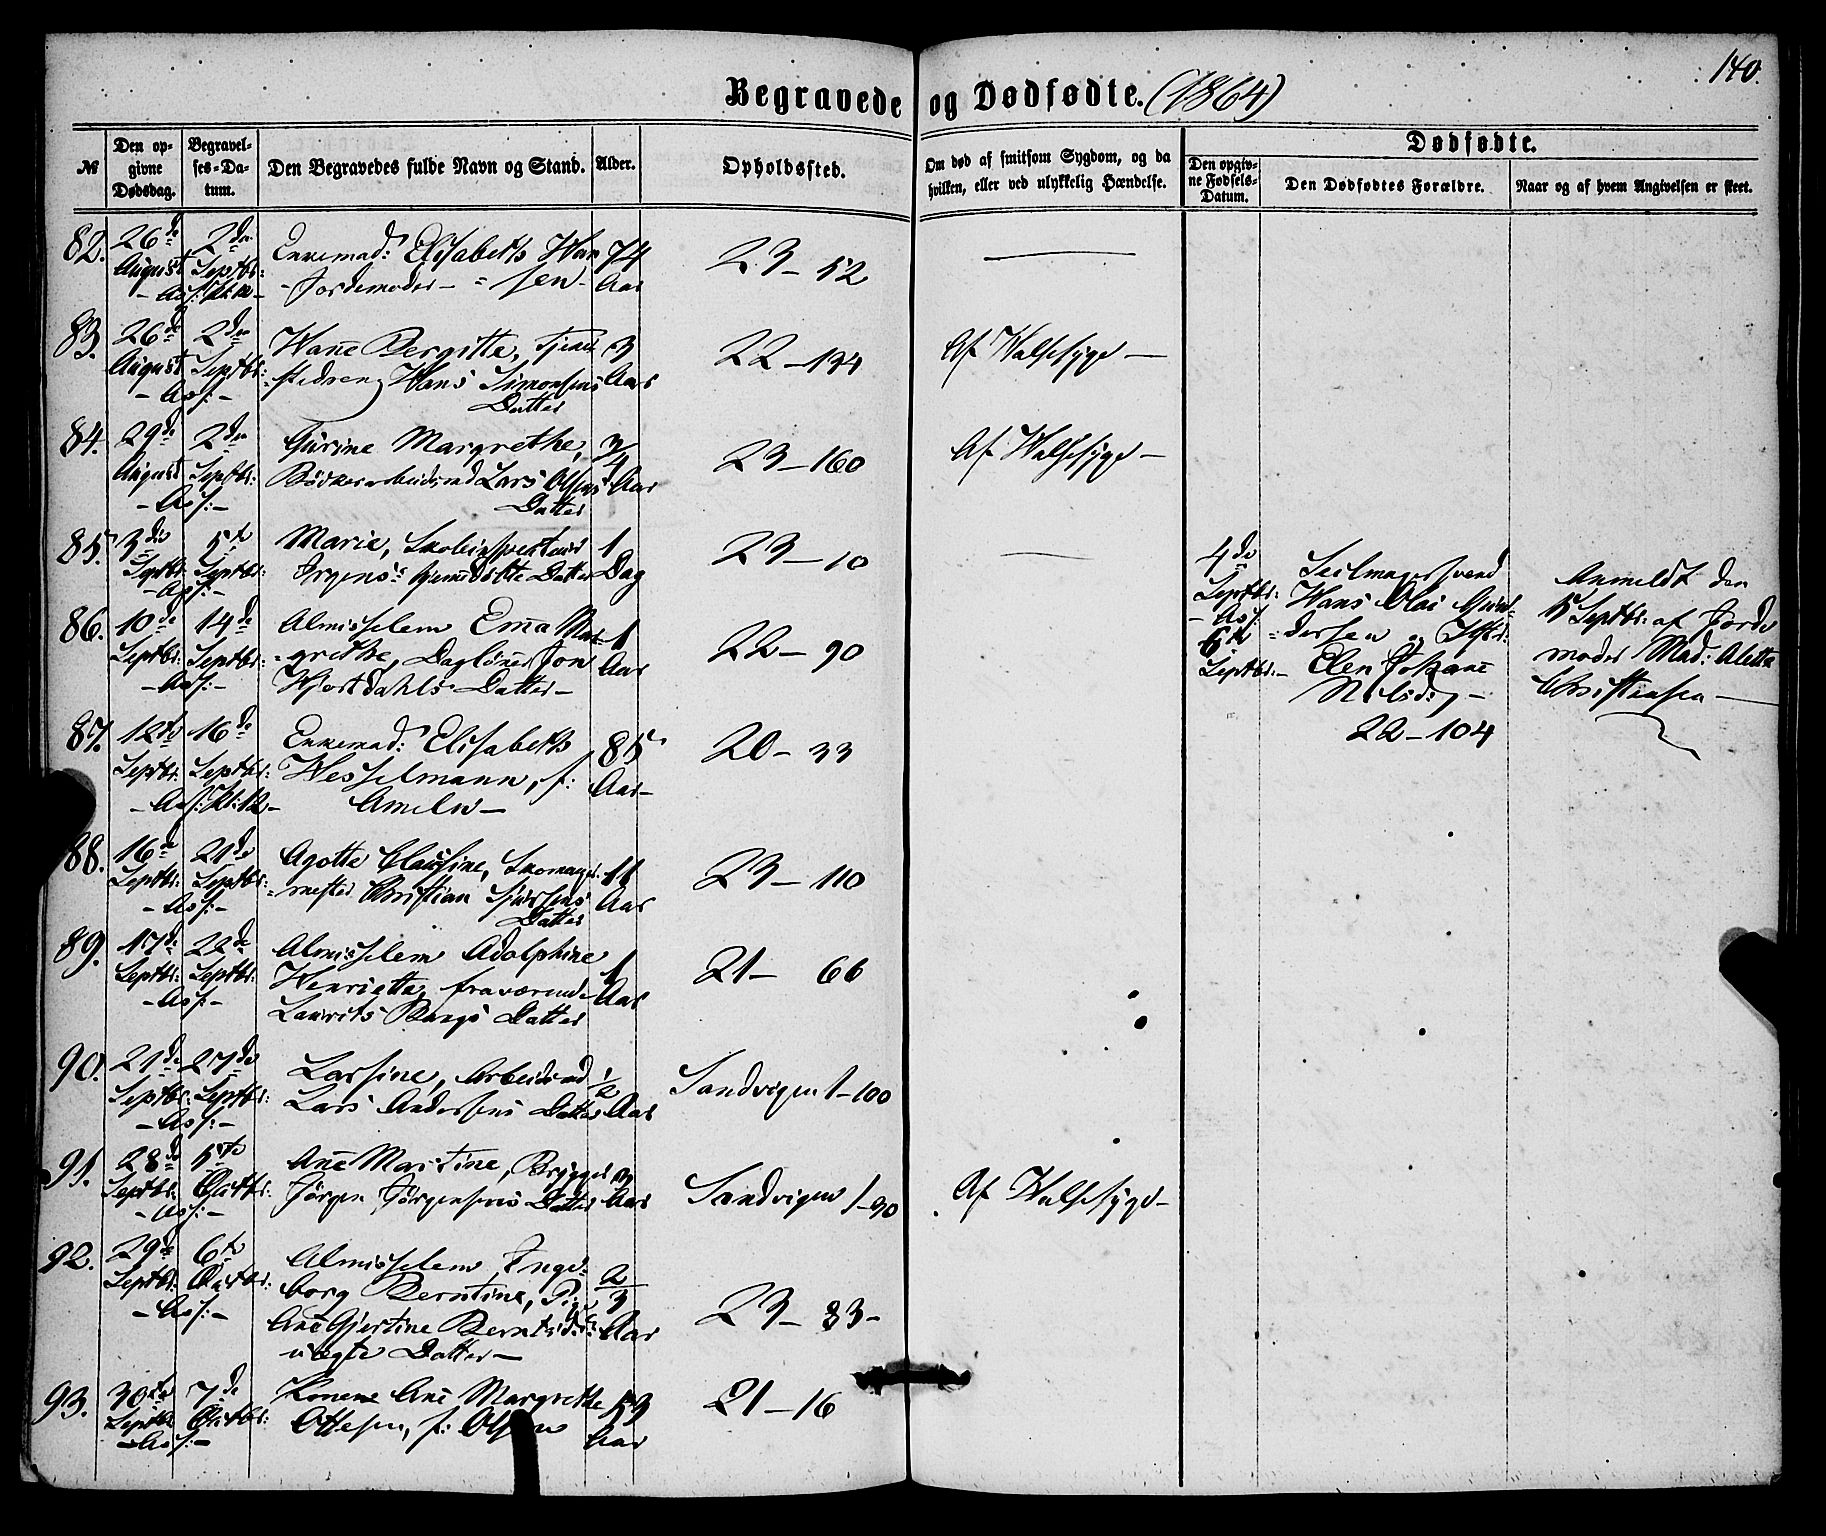 140.
Begravede og Dødfødte. (1864)
№
Den op-
givne
Dødsdag.
Begravel-
ses-Da-
tum.
Den Begravedes fulde Navn og Stand.
Alder.
Opholdssted.
Om død af smitsom Sygdom, og da
hvilken, eller ved ulykkelig Hændelse.
Dødfødte.
Den opgiv-
ne Fødsels-
Datum.
Den Dødfødtes Forældre.
Naar og af hvem Angivelsen er skeet.
82. 26de 2den Enkemad: Elisabeth Han 74 23 – 52 —
August Septbr: – Jordemoder – = sen – Aar
83. 26de 2den Hanne Bergitte, 3 22 – 134 Af Halssyge –
August Septbr: Hans Simonsens Aar
Datter
84. 29de 2den Gurine Margrethe, 3/4 23 – 160 Af Halssyge –
August Septbr: Bødkerarbeidsmd Lars Olsens Aar
Datter
85. 3die 5te Marie, Skoleinspecteur 1 23 – 10 —
Septbr: Septbr: Irgens's hjemdøbte Datter Dag
86. 10de 14de Almisselem Emma Mar- 1 22 – 90
Septbr: Septbr: =grethe, Dagløner Jon Aar
Hjortdahls Datter –
87. 12te 16de Enkemad: Elisabeth 85 20 – 33
Septbr: Septbr: Wesselmann, f: Aar –
Ameln –
88. 16de 21de Agotte Clausine, Skomager 11 23 – 110
Septbr: Septbr: =mester Christian Aar
Datter
89. 17de 22de Almisselem Adolphine 1 21 – 66
Septbr: Septbr: Henriette, fraværende Aar
Laurits Bangs Datter
90. 21de 27de Larsine, Arbeidsmd 1/2 Sandvigen 1 – 100
Septbr: Septbr: Lars Andersens Datter Aar
91. 28de 5te Anne Martine, Brygger 3 Sandvigen 1 – 90 Af Halssyge –
Septbr: Octbr: Jørgen Jørgensens Datter Aar
92. 29de 6te Almisselem Inge= 2/3 23 – 83 –
Septbr: Octbr: borg Berntine, Pige Aar
Anne Gjertine Berntsd:
uægte Datter –
93. 30te 7de Konen Anne Margrethe 53 21 – 16
Septbr: Octbr: Ottesen, f: Olsen Aar
4de
Septbr:
6te
Septbr: –
Seilmagersvend
Hans Olai Gun=
=dersen og
Elen Johanne
Nilsd: –
22 – 104
Anmeldt den
5 Septbr: af Jorde
moder Mad: Aletta
Christensen –